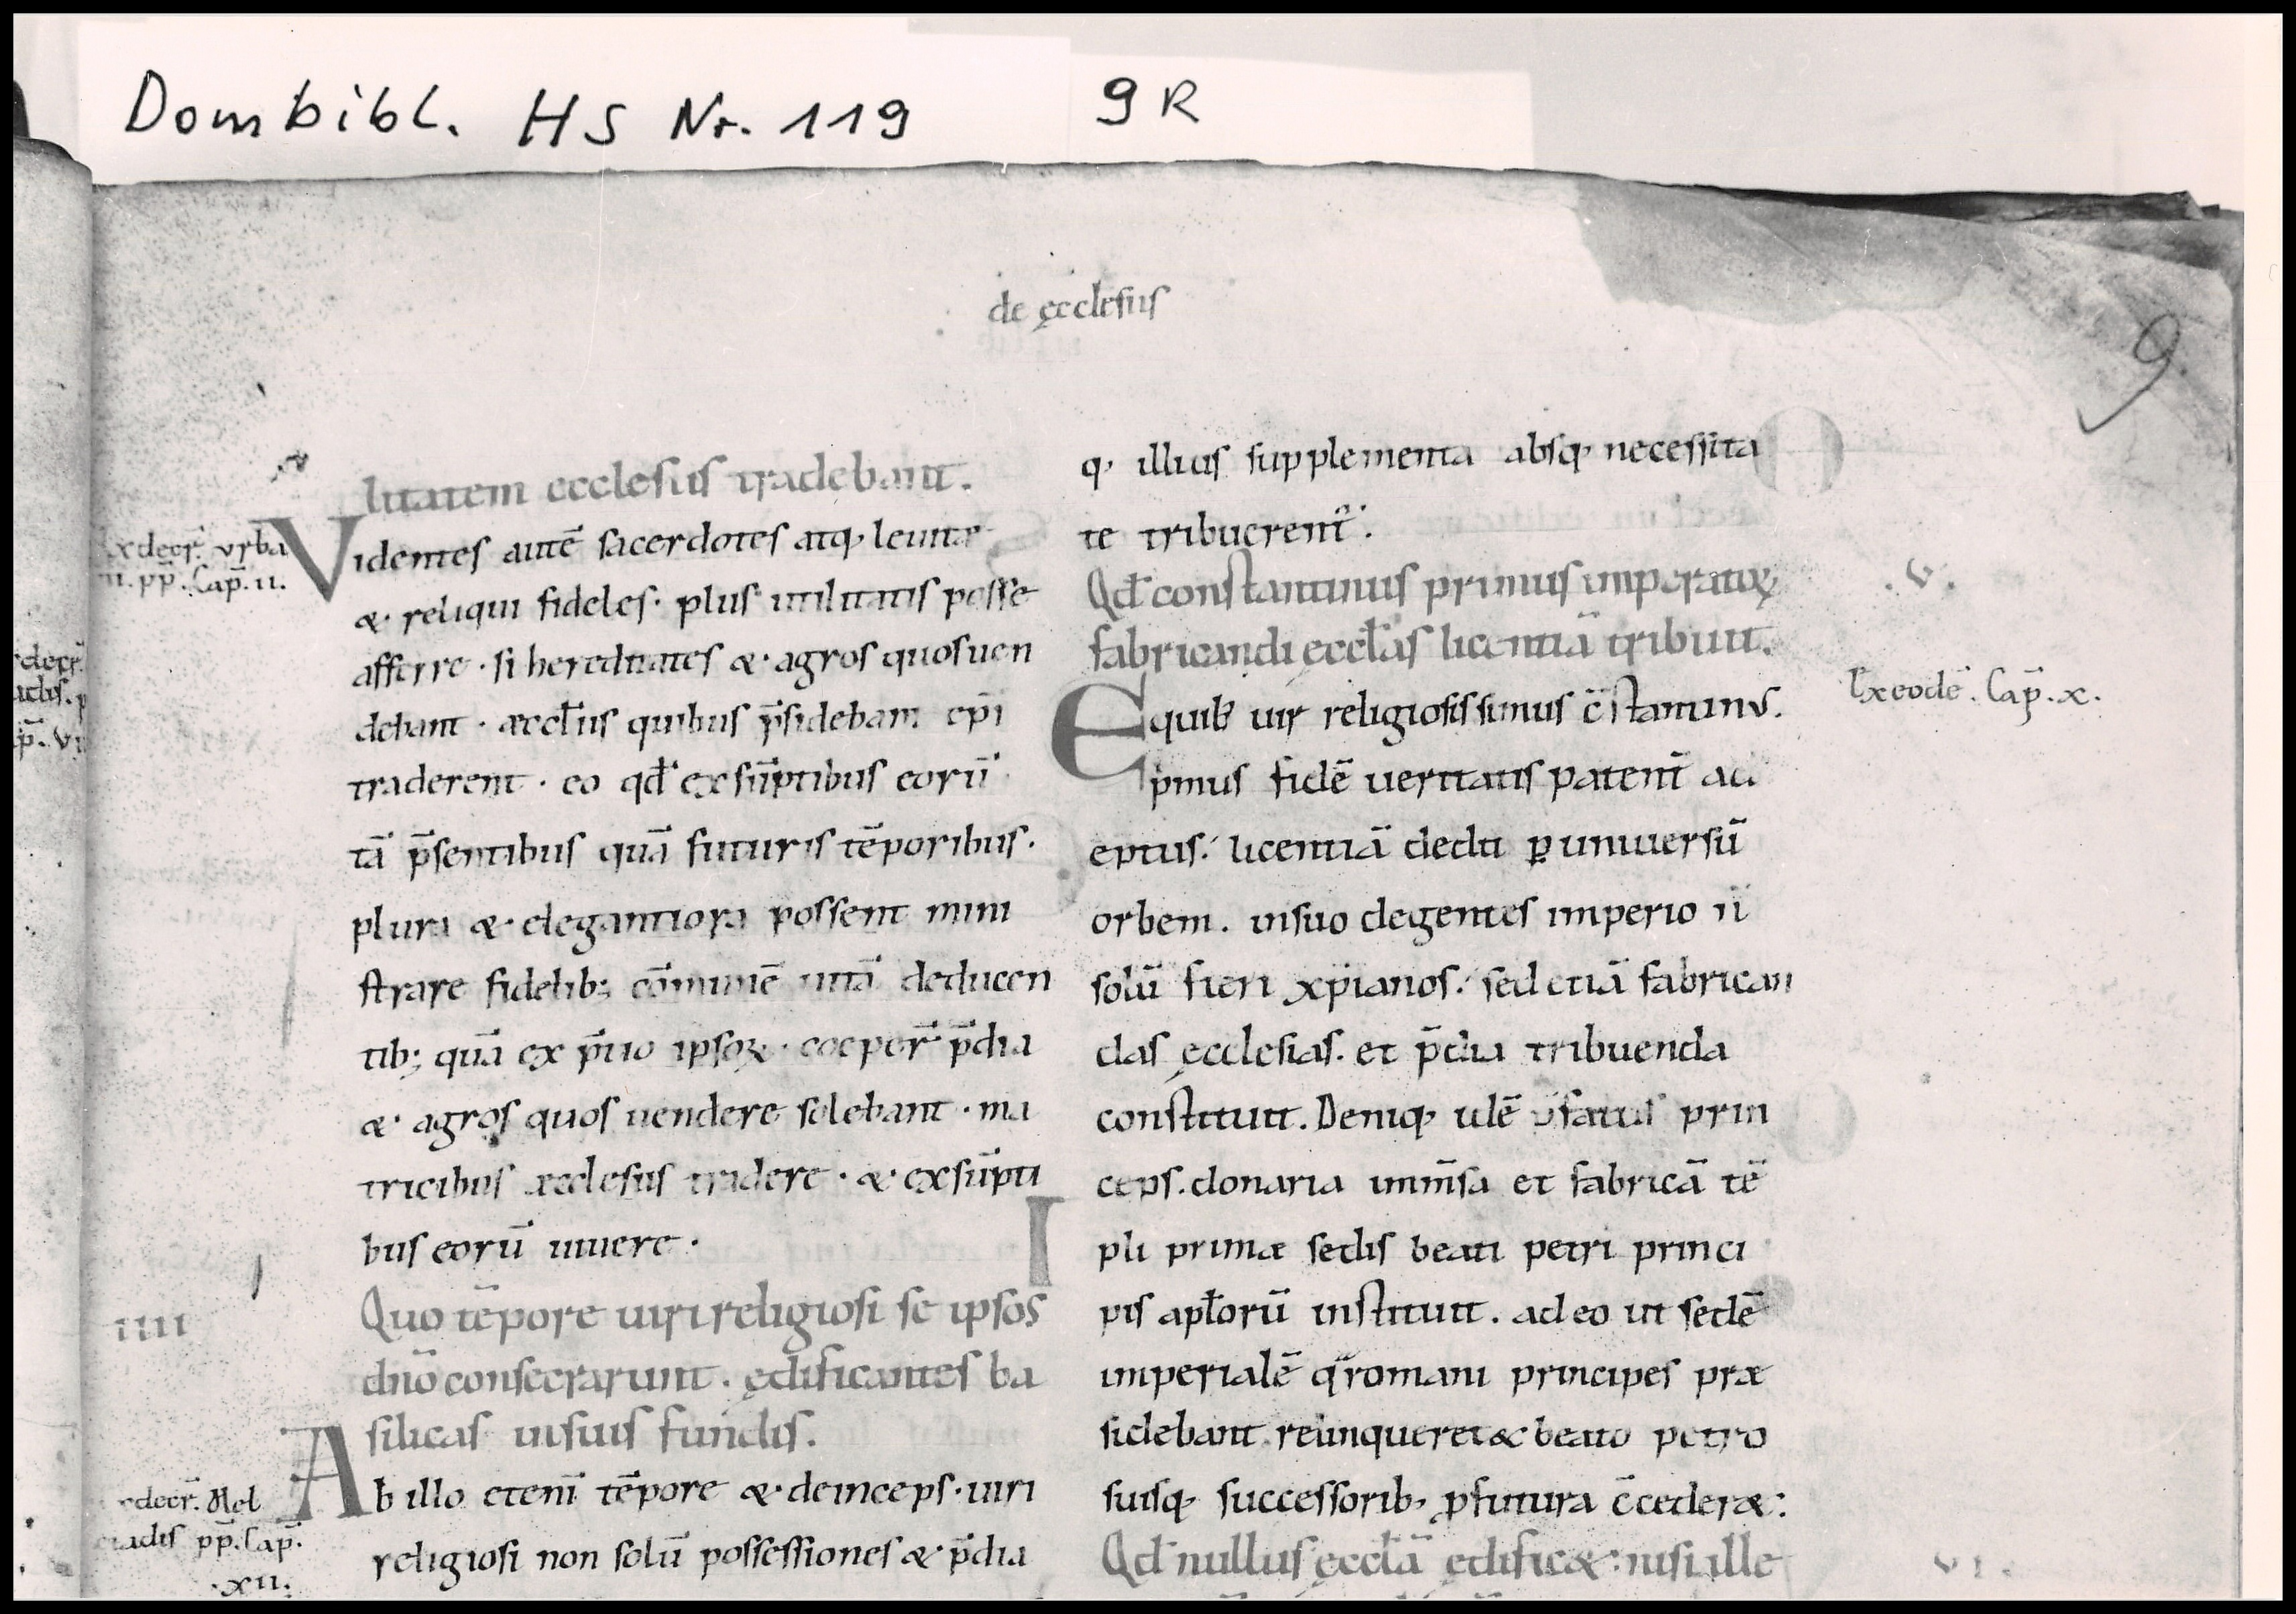 Dombibl. HS Nr. 119 9R
de ęcclesiis
9
litatem ecclesiis tradebant.
xdecr̄. vrba
ii. pp̄. Cap̄. ii.
Videntes autē sacerdotes atq; leuitæ
& reliqui fideles· plus utilitatis posse
afferre· si hereditates & agros quos uen
debant· æccl̄iis quibus p̄sidebant ep̄i
traderent· eo qd̄ ex sūptibus eorū
tā p̄sentibus quā futuris tēporibus·
plura & elegantiora possent mini
strare fidelib; cōmunē uitā ducen
tib; quā ex p̄tio ipsoꝝ· coeper̄ p̄dia
& agros quos uendere solebant· ma
tricibus æcclesiis tradere· & ex sūpti
bus eorū uiuere·
iiii
Quo tēpore uiri religiosi se ipsos
dn̄o consecrarunt· ędificantes ba
silicas in suis fundis.
decr̄. Mel
ciadis pp̄. Cap̄.
·xii·
Ab illo etenī tēpore & deinceps· uiri
religiosi non solū possessiones & p̄dia
q; illius supplementa absq; necessita
te tribuerent̄.
.v.
Qd̄ constantinus primus imperatoꝝ
fabricandi ęccl̄as licentiā tribuit.
Exeodē. Cap̄. x.
E quib; uir religiosissimus c̄stantinus.
p̄mus fidē ueritatis patent̄ ad
eptus. licentiā dedit ꝑ uniuersū
orbem. in suo degentes imperio n̄
solū fieri xp̄ianos. sed etiā fabrican
das ęcclesias. et p̄dia tribuenda
constituit. Deniq; idē p̄fatus prin
ceps. donaria imm̄sa et fabricā tē
pli primæ sedis beati petri princi
pis apl̄orū instituit. adeo ut sedē
imperialē q̄ romani principes præ
sidebant relinqueret & beato petro
suisq; successorib; ꝓfutura c̄cederæ:
vi.
Qd̄ nullus ęccl̄ā ędificæ: nisi ille